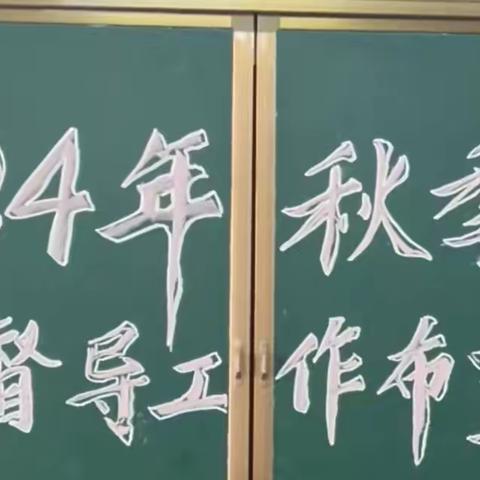 4年秋季
督导工作布